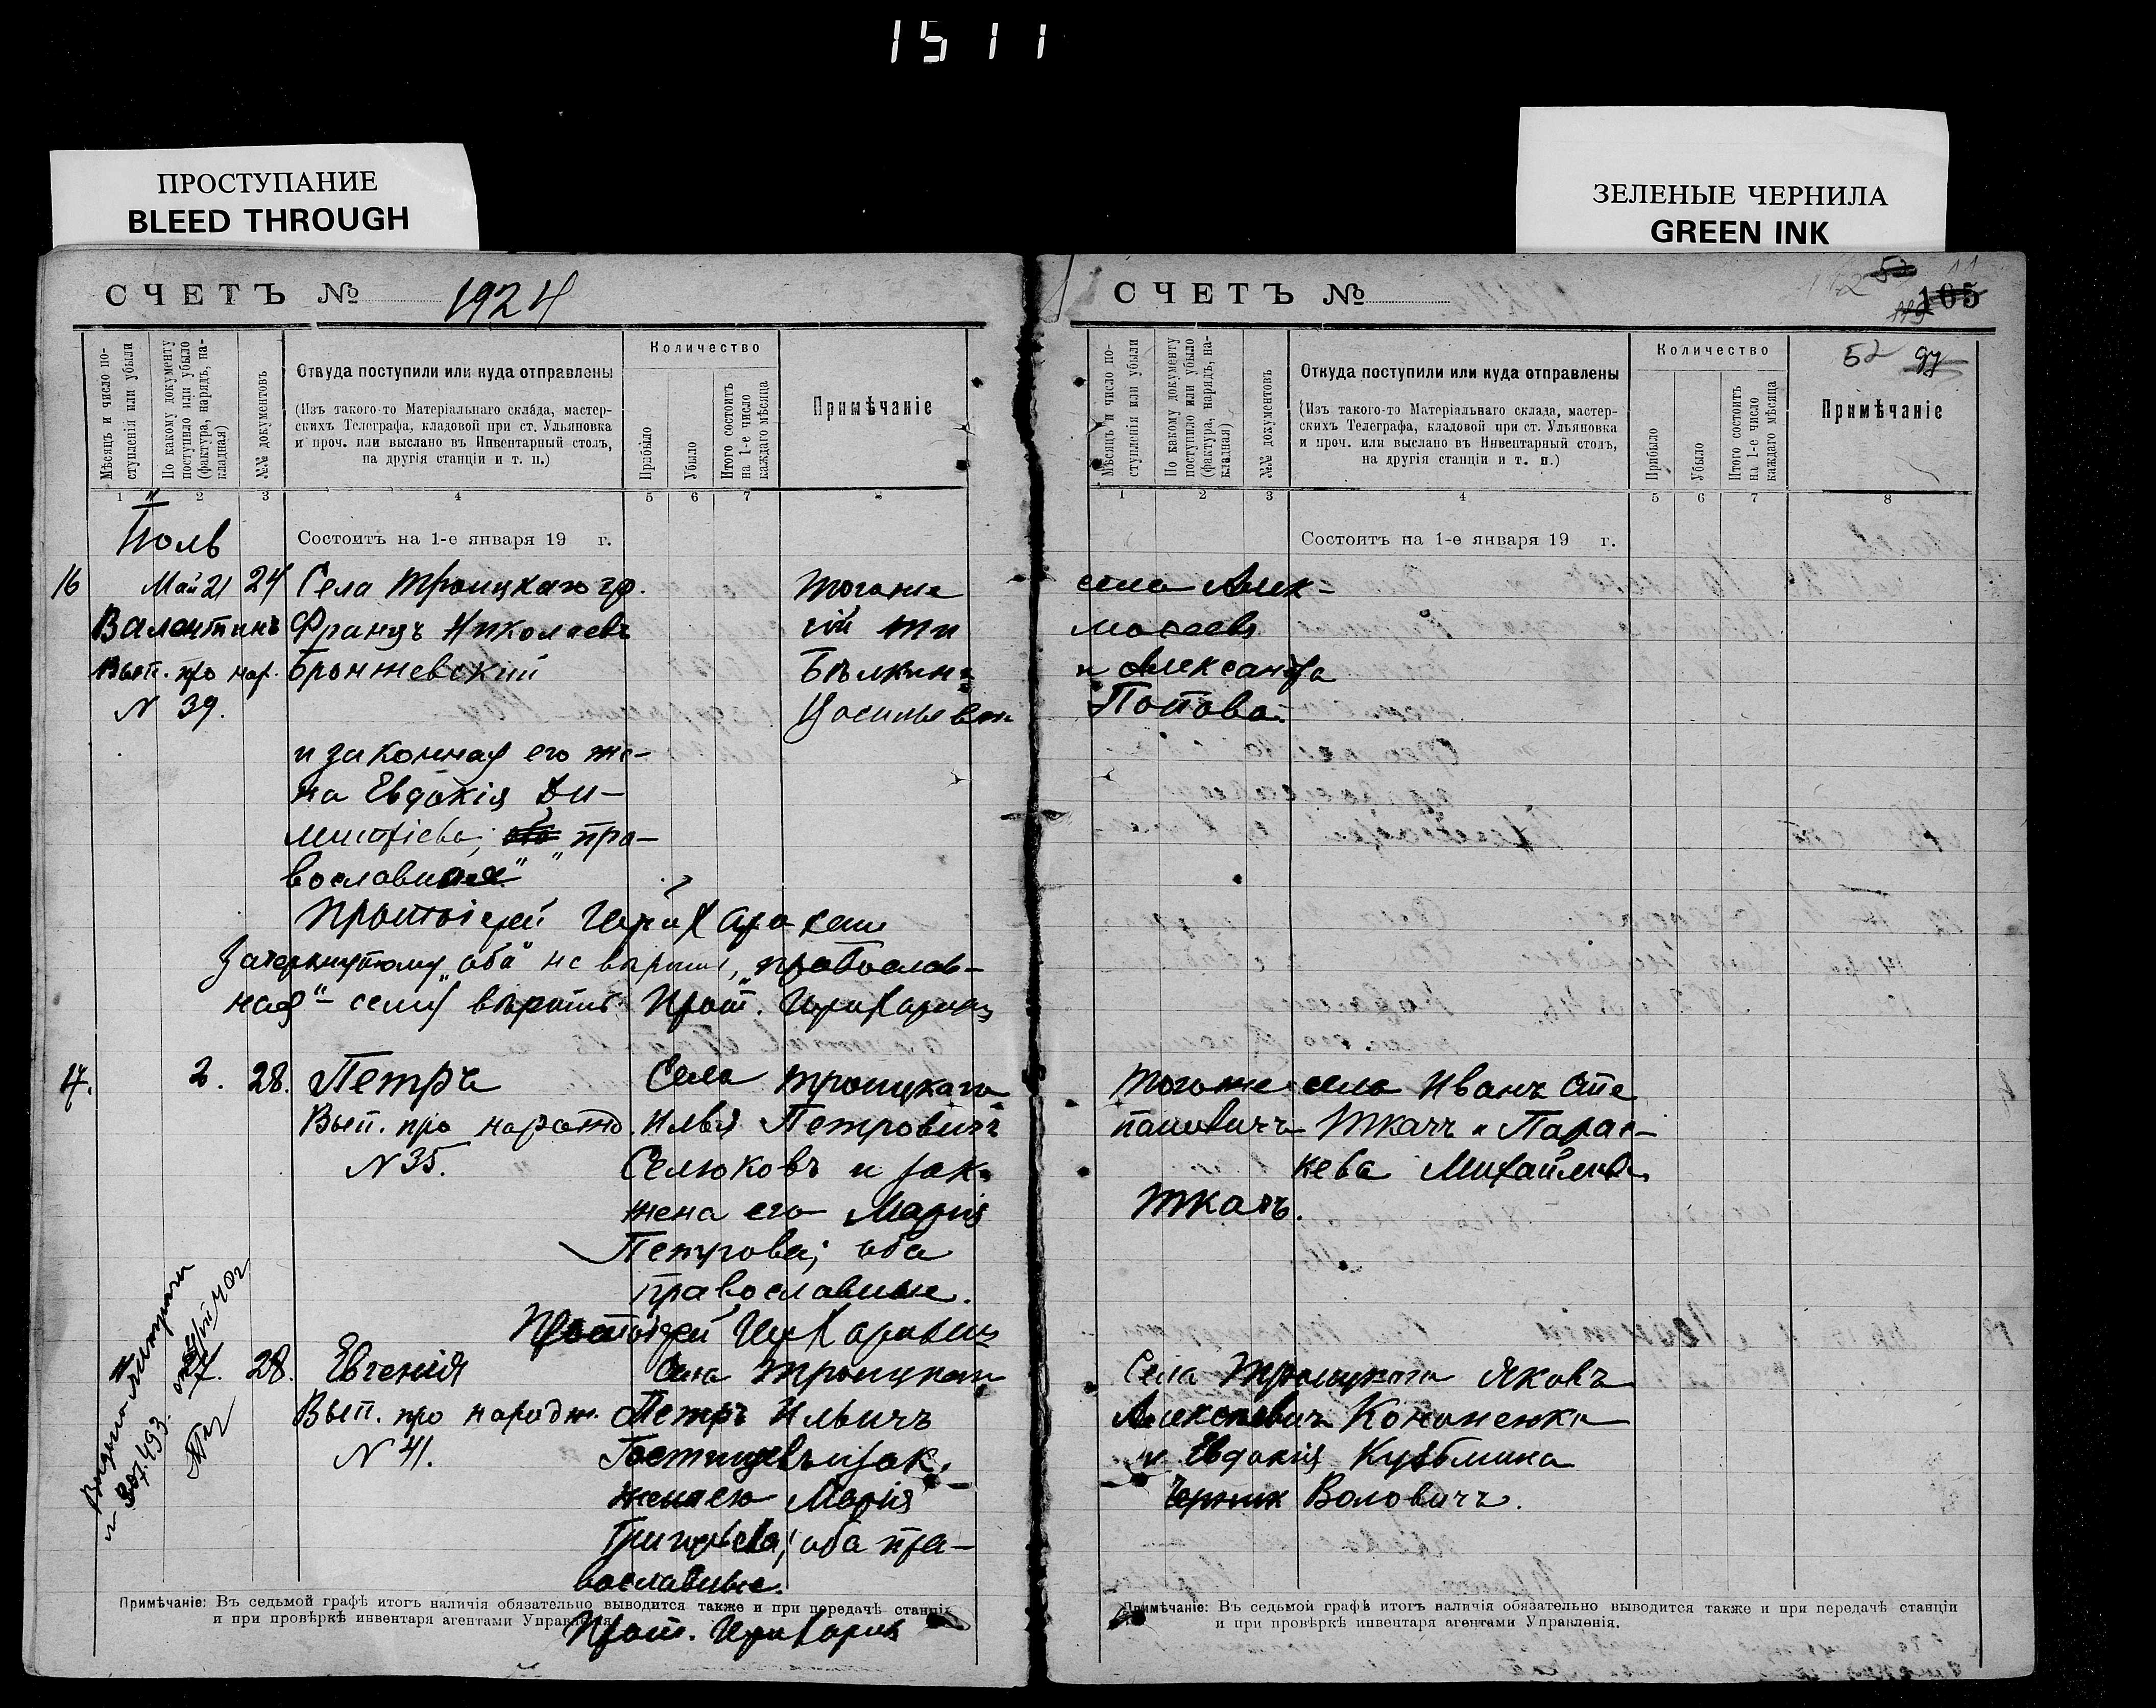 1511
ПРОСТУПАНИЕ
BLEED THROUGH
ЗЕЛЕНЫЕ ЧЕРНИЛА
GREEN INK
СЧЕТЪ № 1924
Мѣсяцъ и число поступленія или убыли
По какому документу поступило или убыло (фактура, нарядъ, накладная)
№№ документовъ
Откуда поступили или куда отправлены
(Изъ такого-то Матеріальнаго склада, мастер-
скихъ Телеграфа, кладовой при ст. Ульяновка
и проч. или выслано въ Инвентарный столъ,
на другія станціи и т. п.)
Количество
Прибыло
Убыло
Итого состоитъ на 1-е число каждаго мѣсяца
Примѣчаніе
1 2 3 4 5 6 7 8
Состоитъ на 1-е января 19 г.
16 Май 21 24 Села Троицкаго гр.
Валентинъ Францъ Николаевъ
Вып. про нар. Бронжевскій
N 39.
и законная его же-
на Евдокія Ди-
митріева; "пра-
вославная"
Протоіерей
Зачеркнутому "оба" не вѣрить, "православ-
ная" - сему вѣрить Прот.
Тогоже
Бѣлкинъ
17. 2. 28. Петръ Села Троицкаго
Вып. про нарожд. Илья Петровичъ
N 35. Селюковъ и зак.
жена его Марія
Петрова; оба
православные.
Протоіерей
27. 28. Евгенія Села Троицкаго
Вып. про народж. Петръ Ильичъ
N 41. Гостищевъ и зак.
жена его Марія
Григорьева; оба пра-
вославные.
Прот.
Примѣчаніе: Въ седьмой графѣ итогъ наличія обязательно выводится также и при передачѣ станціи
и при провѣркѣ инвентаря агентами Управленія.
СЧЕТЪ №
105
52
Мѣсяцъ и число поступленія или убыли
По какому документу поступило или убыло (фактура, нарядъ, накладная)
№№ документовъ
Откуда поступили или куда отправлены
(Изъ такого-то Матеріальнаго склада, мастер-
скихъ Телеграфа, кладовой при ст. Ульяновка
и проч. или выслано въ Инвентарный столъ,
на другія станціи и т. п.)
Количество
Прибыло
Убыло
Итого состоитъ на 1-е число каждаго мѣсяца
Примѣчаніе
1 2 3 4 5 6 7 8
Состоитъ на 1-е января 19 г.
села Алек-
и Александра
Попова.
Тогоже села Иванъ Сте
пановичъ Ткачъ и Парас-
кева Михайлова
Ткачъ.
Села Троицкаго Яковъ
Алексѣевичъ Кононенко
и Евдокія Кузьмина
Воловичъ.
Примѣчаніе: Въ седьмой графѣ итогъ наличія обязательно выводится также и при передачѣ станціи
и при провѣркѣ инвентаря агентами Управленія.